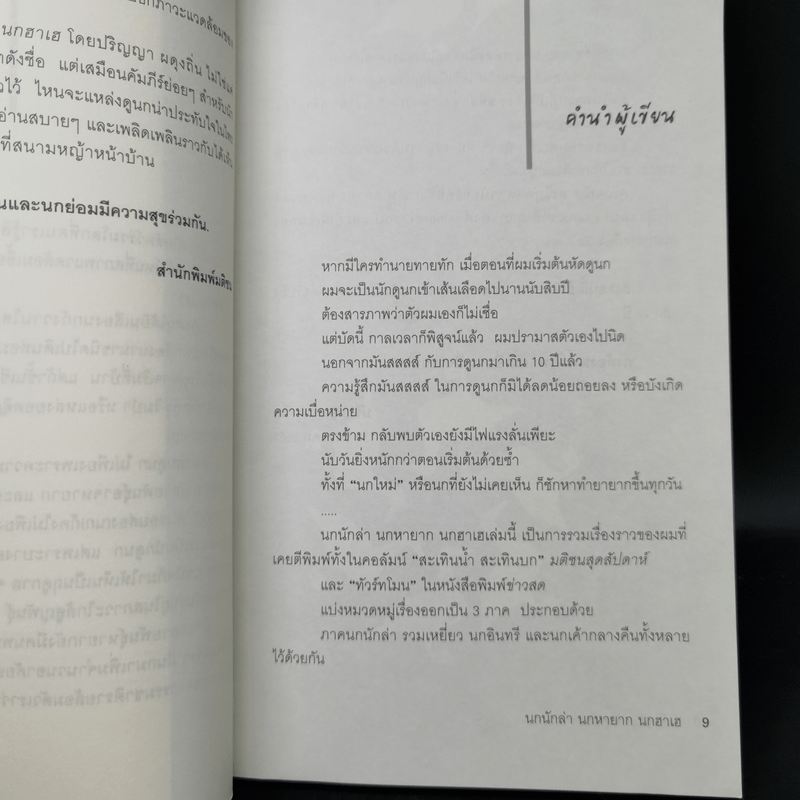 นกฮาเฮ โดยปริญญา ผดุงถิ่น ไม่ใช่แค่
ดังชื่อ แต่เสมือนคัมภีร์ย่อยๆ สำหรับนัก
ไว้ ไหนจะแหล่งดูนกน่าประทับใจในไทย
อ่านสบายๆ และเพลิดเพลินราวกับได้เห็น
ที่สนามหญ้าหน้าบ้าน
และนกย่อมมีความสุขร่วมกัน.
สำนักพิมพ์มติชน
คำนำผู้เขียน
หากมีใครทำนายทายทัก เมื่อตอนที่ผมเริ่มต้นหัดดูนก
ผมจะเป็นนักดูนกเข้าเส้นเลือดไปนานนับสิบปี
ต้องสารภาพว่าตัวผมเองก็ไม่เชื่อ
แต่บัดนี้ กาลเวลาก็พิสูจน์แล้ว ผมปรามาสตัวเองไปนิด
นอกจากมันสสสส์ กับการดูนกมาเกิน 10 ปีแล้ว
ความรู้สึกมันสสสส์ ในการดูนกก็มิได้ลดน้อยถอยลง หรือบังเกิด
ความเบื่อหน่าย
ตรงข้าม กลับพบตัวเองยังมีไฟแรงลั่นเพียะ
นับวันยิ่งหนักกว่าตอนเริ่มต้นด้วยซ้ำ
ทั้งที่ “นกใหม่” หรือนกที่ยังไม่เคยเห็น ก็ชักหาทำยายากขึ้นทุกวัน
.....
นกนักล่า นกหายาก นกฮาเฮเล่มนี้ เป็นการรวมเรื่องราวของผมที่
เคยตีพิมพ์ทั้งในคอลัมน์ “สะเทินน้ำ สะเทินบก” มติชนสุดสัปดาห์
และ “ทัวร์ทโมน” ในหนังสือพิมพ์ข่าวสด
แบ่งหมวดหมู่เรื่องออกเป็น 3 ภาค ประกอบด้วย
ภาคนกนักล่า รวมเหยี่ยว นกอินทรี และนกเค้ากลางคืนทั้งหลาย
ไว้ด้วยกัน
นกนักล่า นกหายาก นกฮาเฮ 9